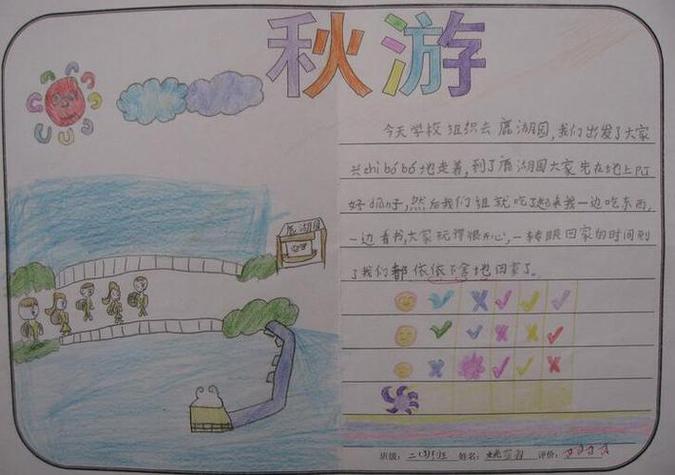 秋游
今天学校组织去鹿湖园,我们出发了大家
兴chì bó bó地走着,到了鹿湖园大家先在地上PJ
好 子,然后我们组就吃了起来我一边吃东西,
一边看书,大家玩得很开心,一转眼回家的时间到
了我们都依依不舍地回家了。
鹿湖园
班级: 二(3)班 姓名: 评价: